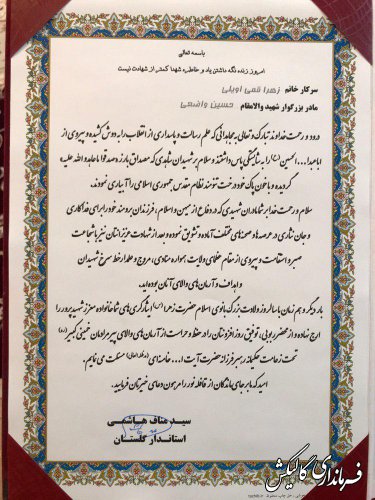 باسمه تعالی
امروز زنده نگه داشتن یاد و خاطره شهدا کمتر از شهادت نیست
سرکار خانم زهرا قمی اویلی
مادر بزرگوار شهید والامقام حسین واضعی
درود و رحمت خداوند تبارک و تعالی بر مجاهدانی که علم رسالت و پاسداری از انقلاب را به دوش کشیده و پیروی از
ابا عبدا... الحسین (ع) را به شایستگی پاس داشتند و سلام بر شهیدان شاهدی که مصداق بارز صدقوا ما عاهدوا الله علیه
گردیده و با خون پاک خود درخت تنومند نظام مقدس جمهوری اسلامی را آبیاری نمودند.
سلام و رحمت خدا بر شما مادران شهیدی که در دفاع از میهن و اسلام، فرزندان برومند خود را برای فداکاری
و جان نثاری در عرصه ها و صحنه های مختلف آماده و تشویق نموده و بعد از شهادت عزیزانتان نیز با شجاعت
صبر و استقامت و پیروی از مقام عظمای ولایت همواره منادی، مروج و علمدار خط سرخ شهیدان
و اهداف و آرمان های والای آنان بوده اید.
بار دیگر و هم زمان با سالروز ولادت بزرگ بانوی اسلام حضرت زهرا (س) ایثارگری های شما خانواده معزز شهید پرور را
ارج نهاده و از محضر ربوبی، توفیق روز افزونتان را در حفظ و حراست از آرمان های والای پیر مرادمان خمینی کبیر (ره)
تحت زعامت حکیمانه رهبر فرزانه حضرت آیت ا... خامنه ای (مدظله العالی) مسئلت می نمایم.
امید که ما بر جای ماندگان از قافله نور را مرهون دعای خیرتان فرمایید.
سید مناف هاشمی
استاندار گلستان
فرمانداری گالیکش